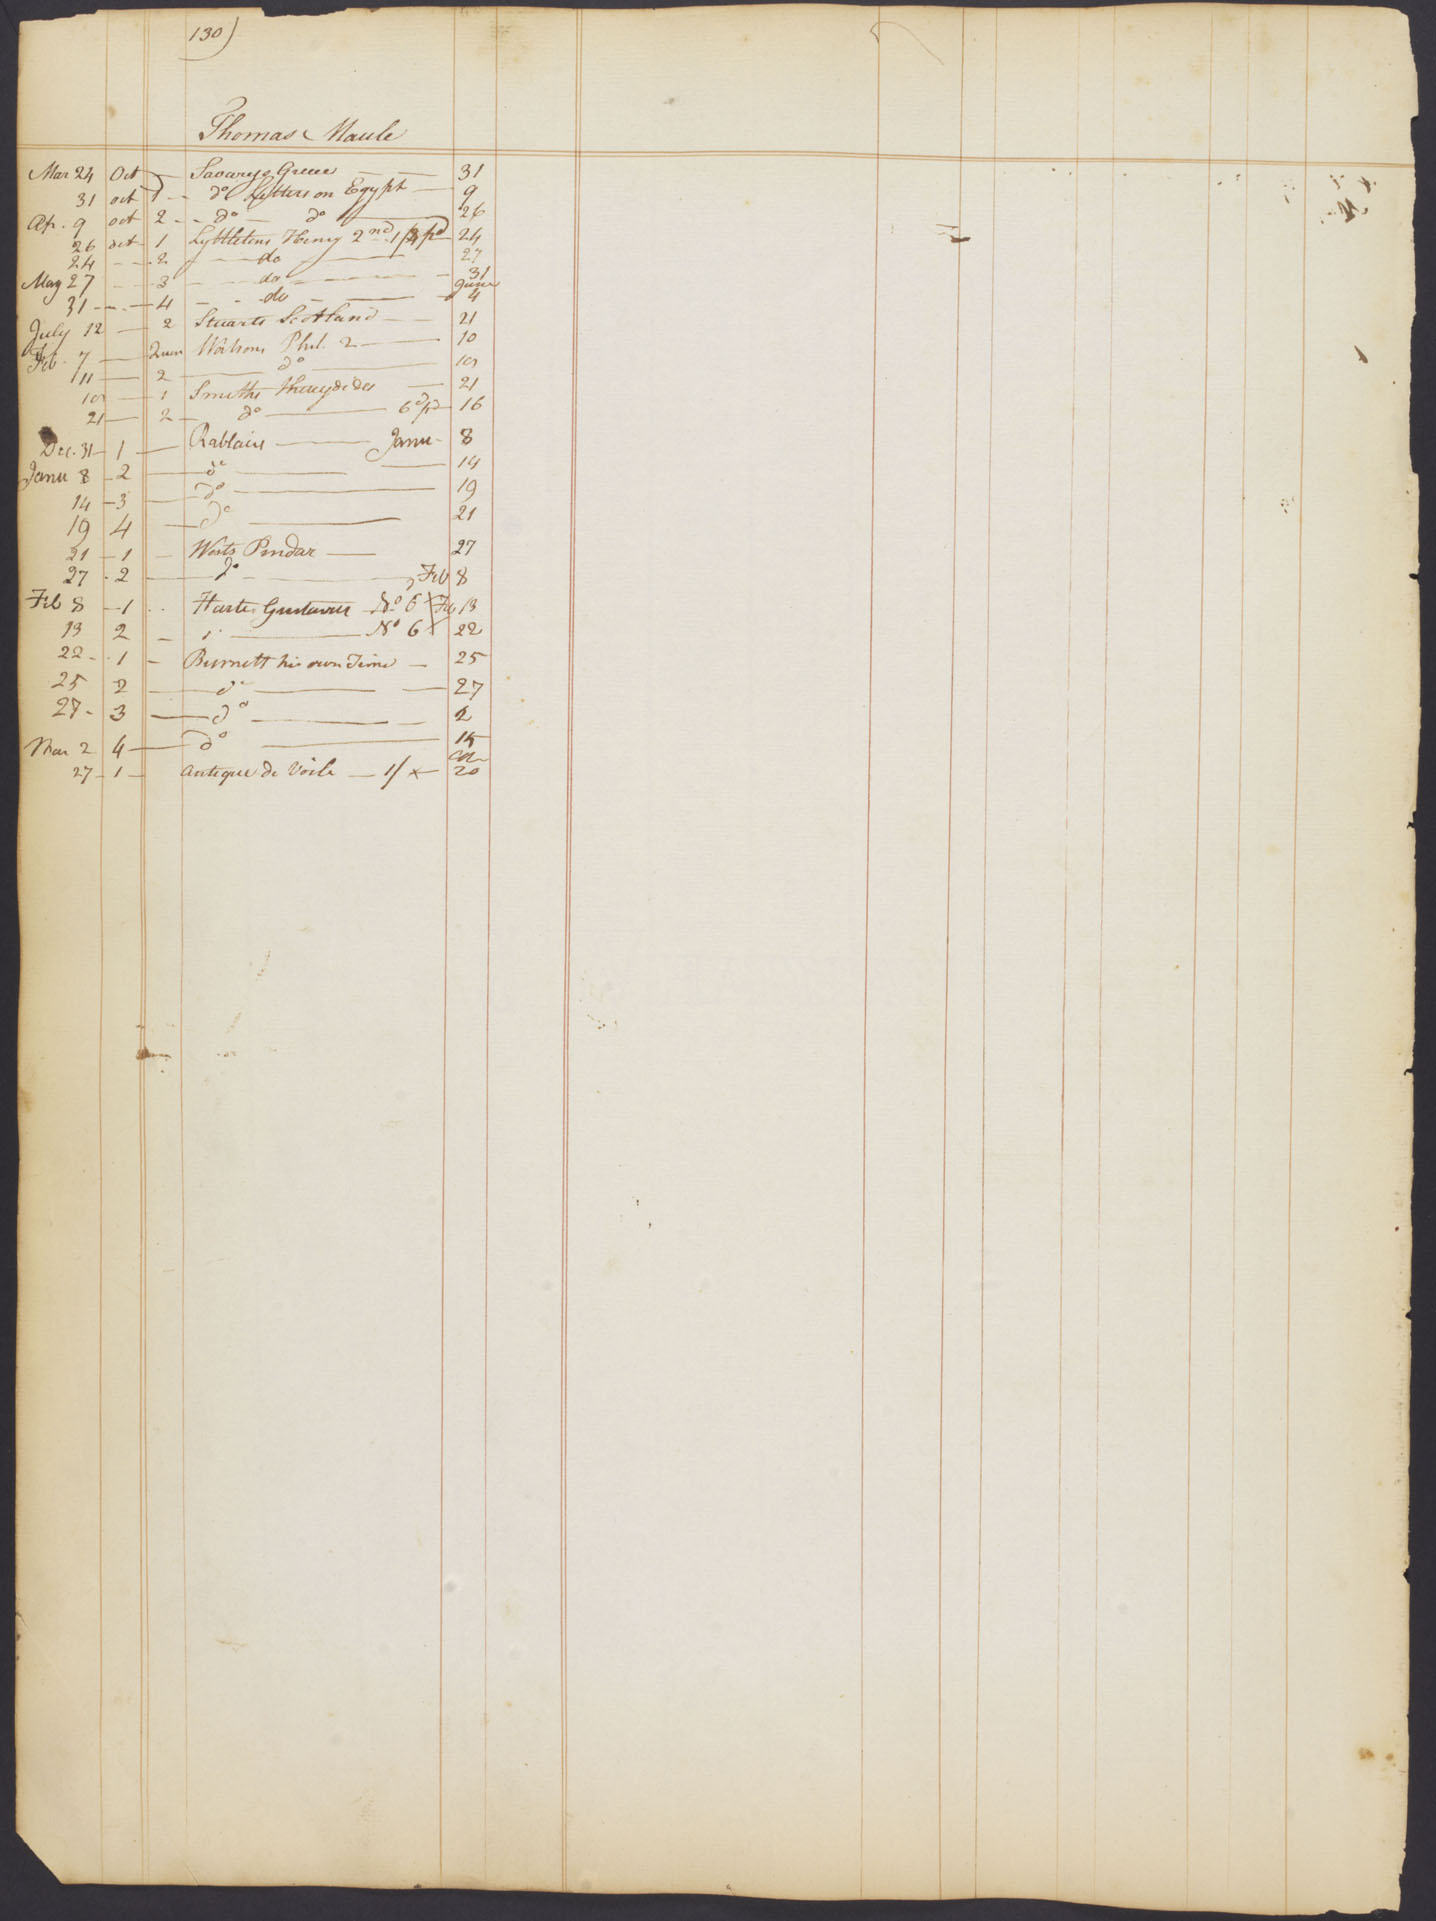 130)
Thomas Maule
Mar 24 Oct — Savarys Greece — — 31
31 oct 1 - - do Letters on Egypt — 9
Ap. 9 oct 2 - - do — do — 26
26 oct 1 Lyttletons Henry 2nd 1/3 pd 24
24 - - 2 - — do — 27
May 27 - - 3 - — do — 31
31 - - — 4 - - do - — June 4
July 12 — 2 Stuarts Scotland — — 21
Feb. 7 — 2um Watsons Phil. 2 — 10
11 — 2 — do — 19
19 — 1 Smiths Thucydides — 21
21 — 2 — do — 6d pd 16
Dec. 31 — 1 — Rablais — Janu - 8
Janu 8 - 2 — do — — 14
14 - 3 — do — 19
19 4 — do — 21
21 - 1 - Wests Pindar — 27
27 - 2 — do - — Feb 8
Feb 8 - 1 . . Hartes Gustavus No 6 X Feb 13
13 2 - — No 6 X 22
22 - . 1 - Burnett his own Time — 25
25 2 — do — — 27
27 - 3 — do — — 2
Mar 2 4 — do — 15
27 - 1 - Antique de Voile — 1/ x — 20